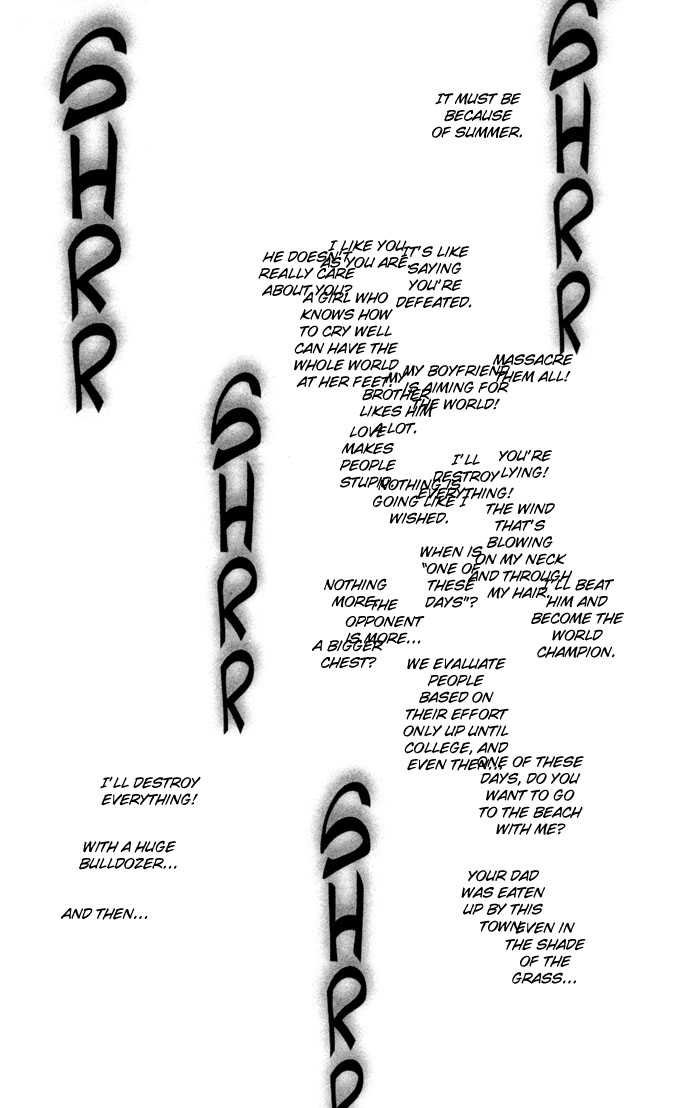 SHRR
SHRR
IT MUST BE
BECAUSE
OF SUMMER.
I LIKE YOU
AS YOU ARE.
HE DOESN'T
REALLY CARE
ABOUT YOU?
IT'S LIKE
SAYING
YOU'RE
DEFEATED.
A GIRL WHO
KNOWS HOW
TO CRY WELL
CAN HAVE THE
WHOLE WORLD
AT HER FEET!
MASSACRE
THEM ALL!
MY BOYFRIEND
IS AIMING FOR
THE WORLD!
MY
BROTHER
LIKES HIM
A LOT.
SHRR
LOVE
MAKES
PEOPLE
STUPID.
YOU'RE
LYING!
I'LL
DESTROY
EVERYTHING!
NOTHING IS
GOING LIKE I
WISHED.
THE WIND
THAT'S
BLOWING
ON MY NECK
AND THROUGH
MY HAIR.
WHEN IS
"ONE OF
THESE
DAYS"?
NOTHING
MORE.
THE
OPPONENT
IS MORE...
I'LL BEAT
HIM AND
BECOME THE
WORLD
CHAMPION.
A BIGGER
CHEST?
WE EVALUATE
PEOPLE
BASED ON
THEIR EFFORT
ONLY UP UNTIL
COLLEGE, AND
EVEN THEN...
ONE OF THESE
DAYS, DO YOU
WANT TO GO
TO THE BEACH
WITH ME?
I'LL DESTROY
EVERYTHING!
WITH A HUGE
BULLDOZER...
AND THEN...
SHRR
YOUR DAD
WAS EATEN
UP BY THIS
TOWN.
EVEN IN
THE SHADE
OF THE
GRASS...